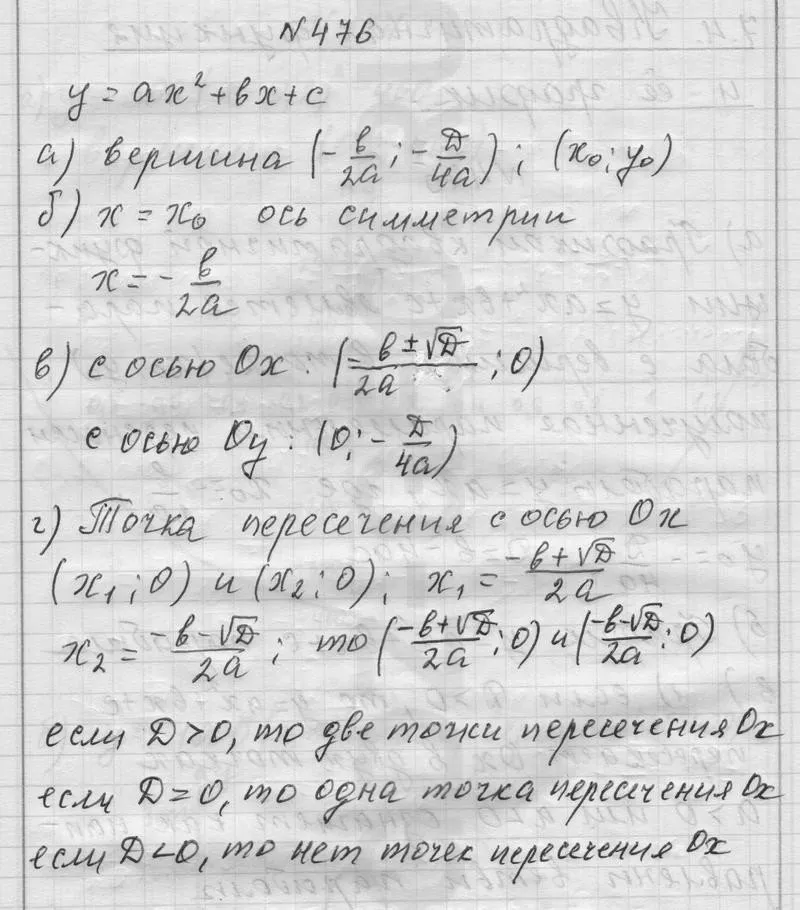 №476
y = ax² + bx + c
а) вершина (-b/2a ; -D/4a) ; (x₀; y₀)
б) x = x₀ ось симметрии
x = -b/2a
в) с осью Ox : (-b ± √D/2a ; 0)
с осью Oy : (0; -D/4a)
г) Точка пересечения с осью Ox
(x₁ ; 0) и (x₂ ; 0) ; x₁ = -b + √D/2a
x₂ = -b - √D/2a ; то (-b + √D/2a ; 0) и (-b - √D/2a ; 0)
если D > 0, то две точки пересечения Ox
если D = 0, то одна точка пересечения Ox
если D < 0, то нет точек пересечения Ox